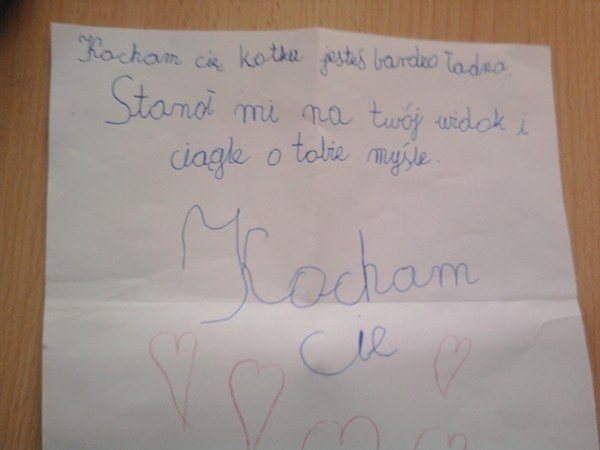 Kocham cię kotku jesteś bardzo ładna.
Stanoł mi na twój widok i
ciągle o tobie myśle.
Kocham
cie